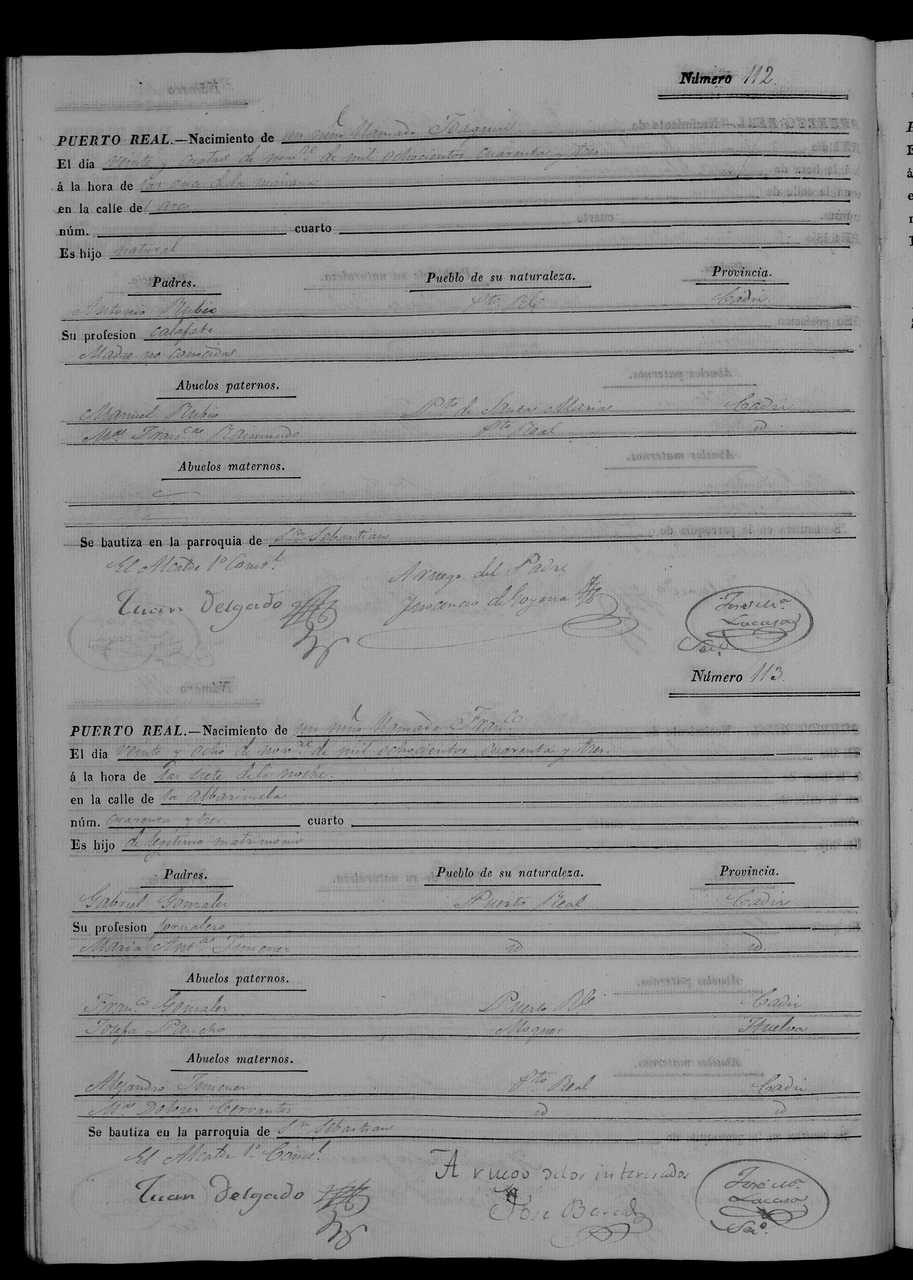 Número 112.
PUERTO REAL.—Nacimiento de un niño llamado Joaquin
El dia veinte y cuatro de nov.re de mil ochocientos cuarenta y tres
á la hora de las una de la mañana
en la calle de
núm. cuarto
Es hijo natural
Padres. Pueblo de su naturaleza. Provincia.
Antonio Rubio Pto. Rl. Cadiz
Su profesion calafate
Madre no conocida
Abuelos paternos.
Manuel Rubio Pto de Santa Maria Cadiz
Ma. Fran.ca Raimundo Pto Real id
Abuelos maternos.
Se bautiza en la parroquia de Sn Sebastian
El Alcalde 1º Const.l
A ruego del Padre
Juan Delgado
Jose Ma.
Lacasa
Número 113.
PUERTO REAL.—Nacimiento de un niño llamado Fran.co
El dia veinte y ocho de nov.re de mil ochocientos cuarenta y tres.
á la hora de las siete de la noche.
en la calle de la
núm. cuarenta y tres. cuarto
Es hijo de legitimo matrimonio
Padres. Pueblo de su naturaleza. Provincia.
Gabriel Gonzalez Puerto Real Cadiz
Su profesion jornalero
Maria Ant.a Jimenez id id.
Abuelos paternos.
Fran.co Gonzalez Puerto Rl. Cadiz
Josefa Moguer Huelva
Abuelos maternos.
Alejandro Jimenez Pto Real Cadiz
Ma. Dolores Cervantes id id
Se bautiza en la parroquia de Sn Sebastian
El Alcalde 1º Const.l
A ruego de los interesados
Juan Delgado
Jose
Jose Ma.
Lacasa
Srio.